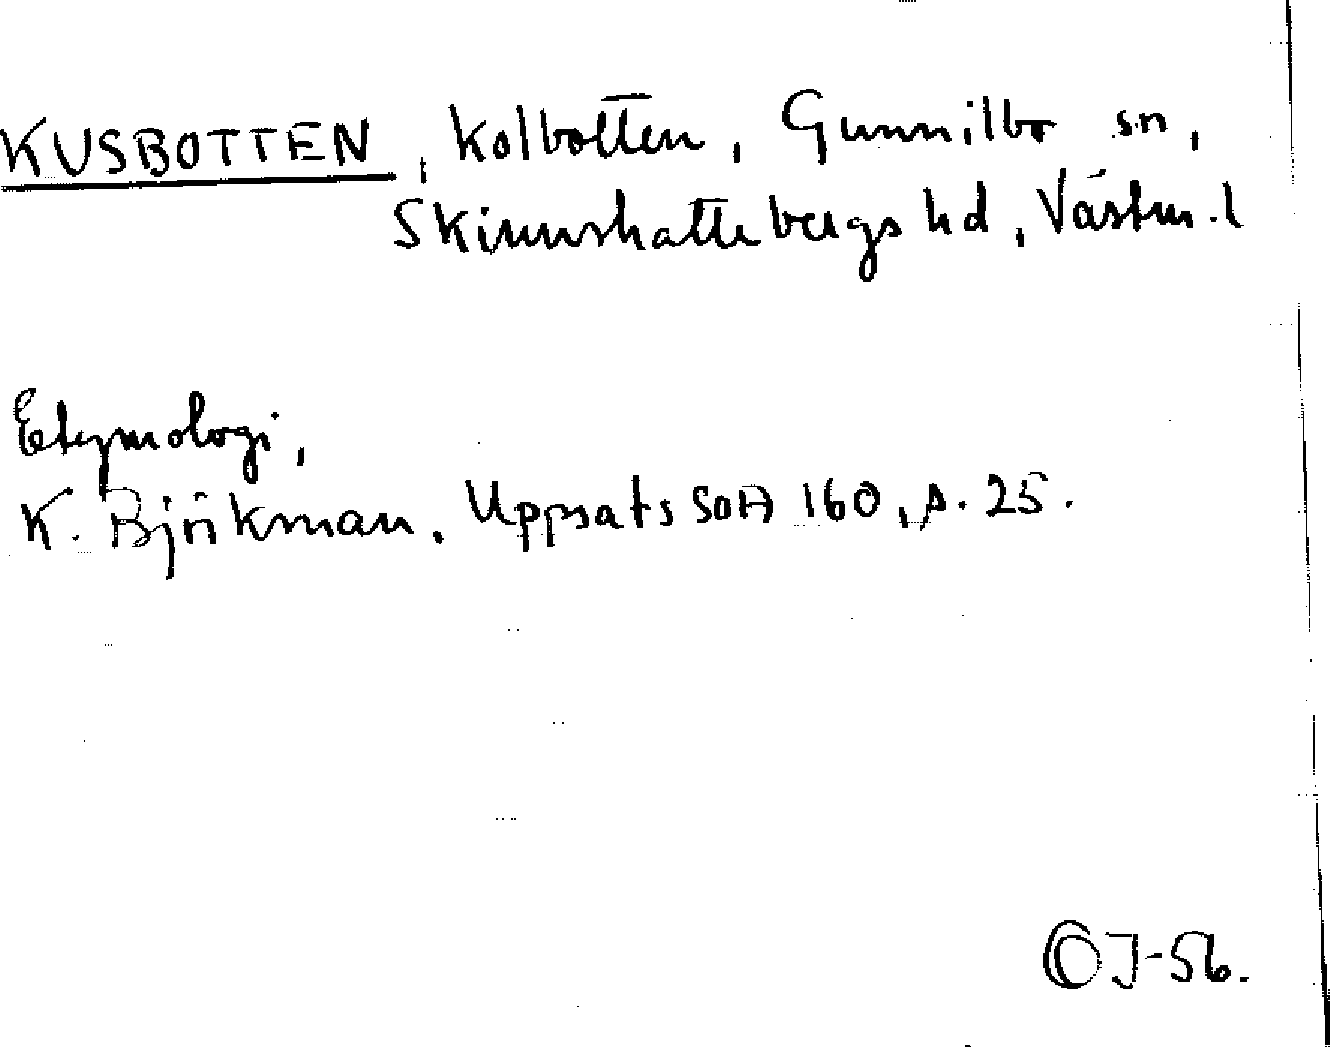 KUSBOTTEN, Kolbotten, Gunnilbo sn,
Skinnskattebergs hd, Västm. l
Etymologi,
K. Björkman, Uppsats SOA 160, s. 25.
OJ-56.